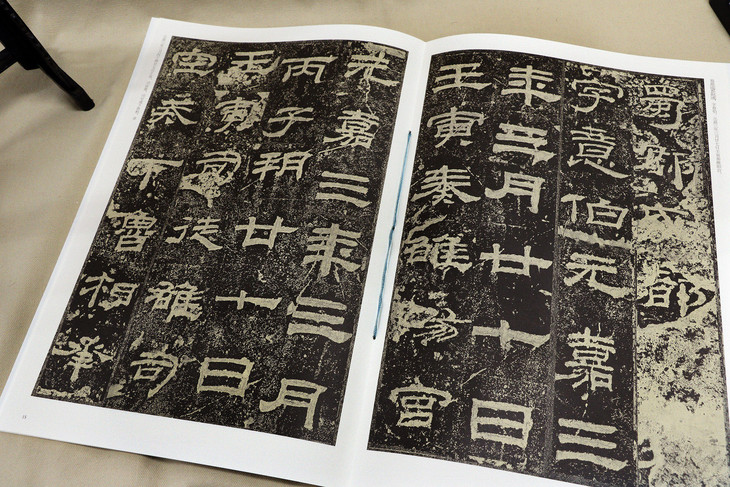 蜀郡成都
字意伯元嘉三
年三月廿七日
壬寅奏雒陽宮
元嘉三年三月
丙子朔廿七日
壬寅司徒雄司
空戒下魯相承